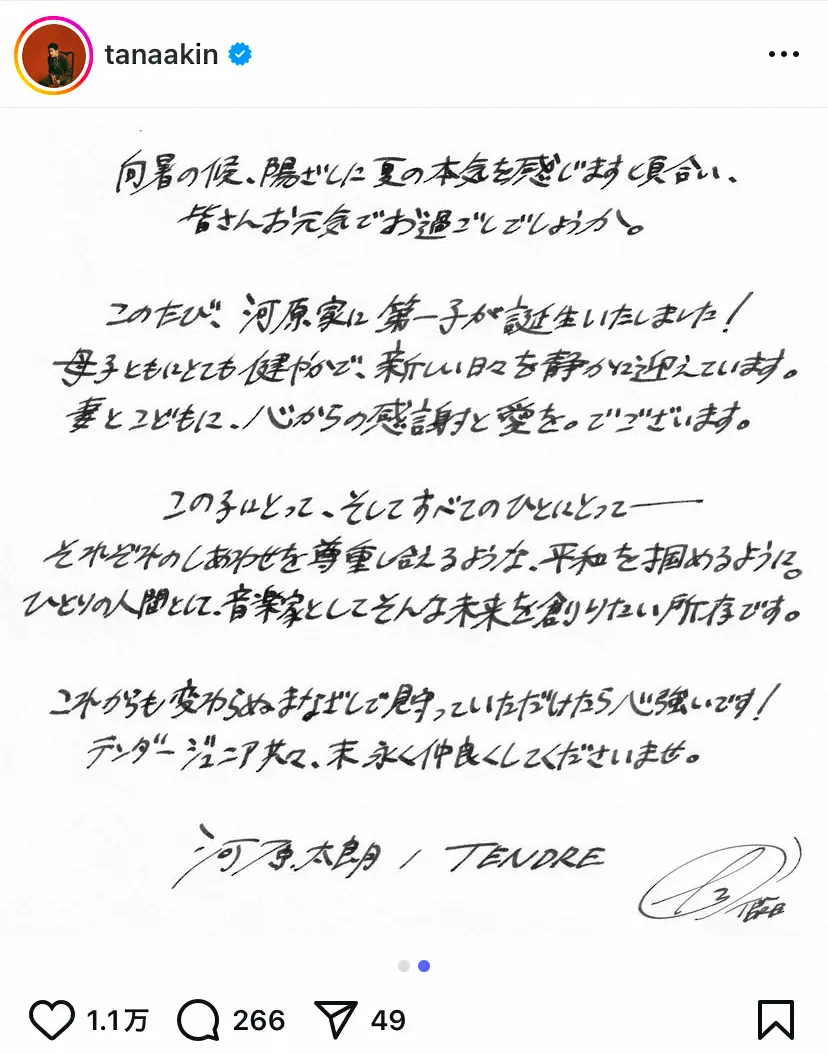 tanaakin
向暑の候、陽ざしに夏の本気を感じます頃合い、
皆さんお元気でお過ごしでしょうか。
このたび、河原家に第一子が誕生いたしました!
母子ともにとても健やかで、新しい日々を静かに迎えています。
妻とこどもに、心からの感謝と愛を。でございます。
この子にとって、そしてすべてのひとにとって──
それぞれのしあわせを尊重し合えるような、平和を掴めるように。
ひとりの人間として、音楽家としてそんな未来を創りたい所存です。
これからも変わらぬまなざしで見守っていただけたら心強いです!
テンダージュニア共々、末永く仲良くしてくださいませ。
河原太朗 / TENDRE
1.1万 266 49